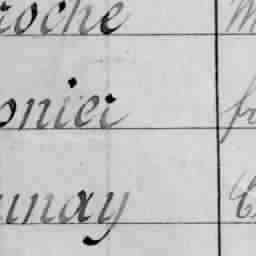 roche
onier
unay